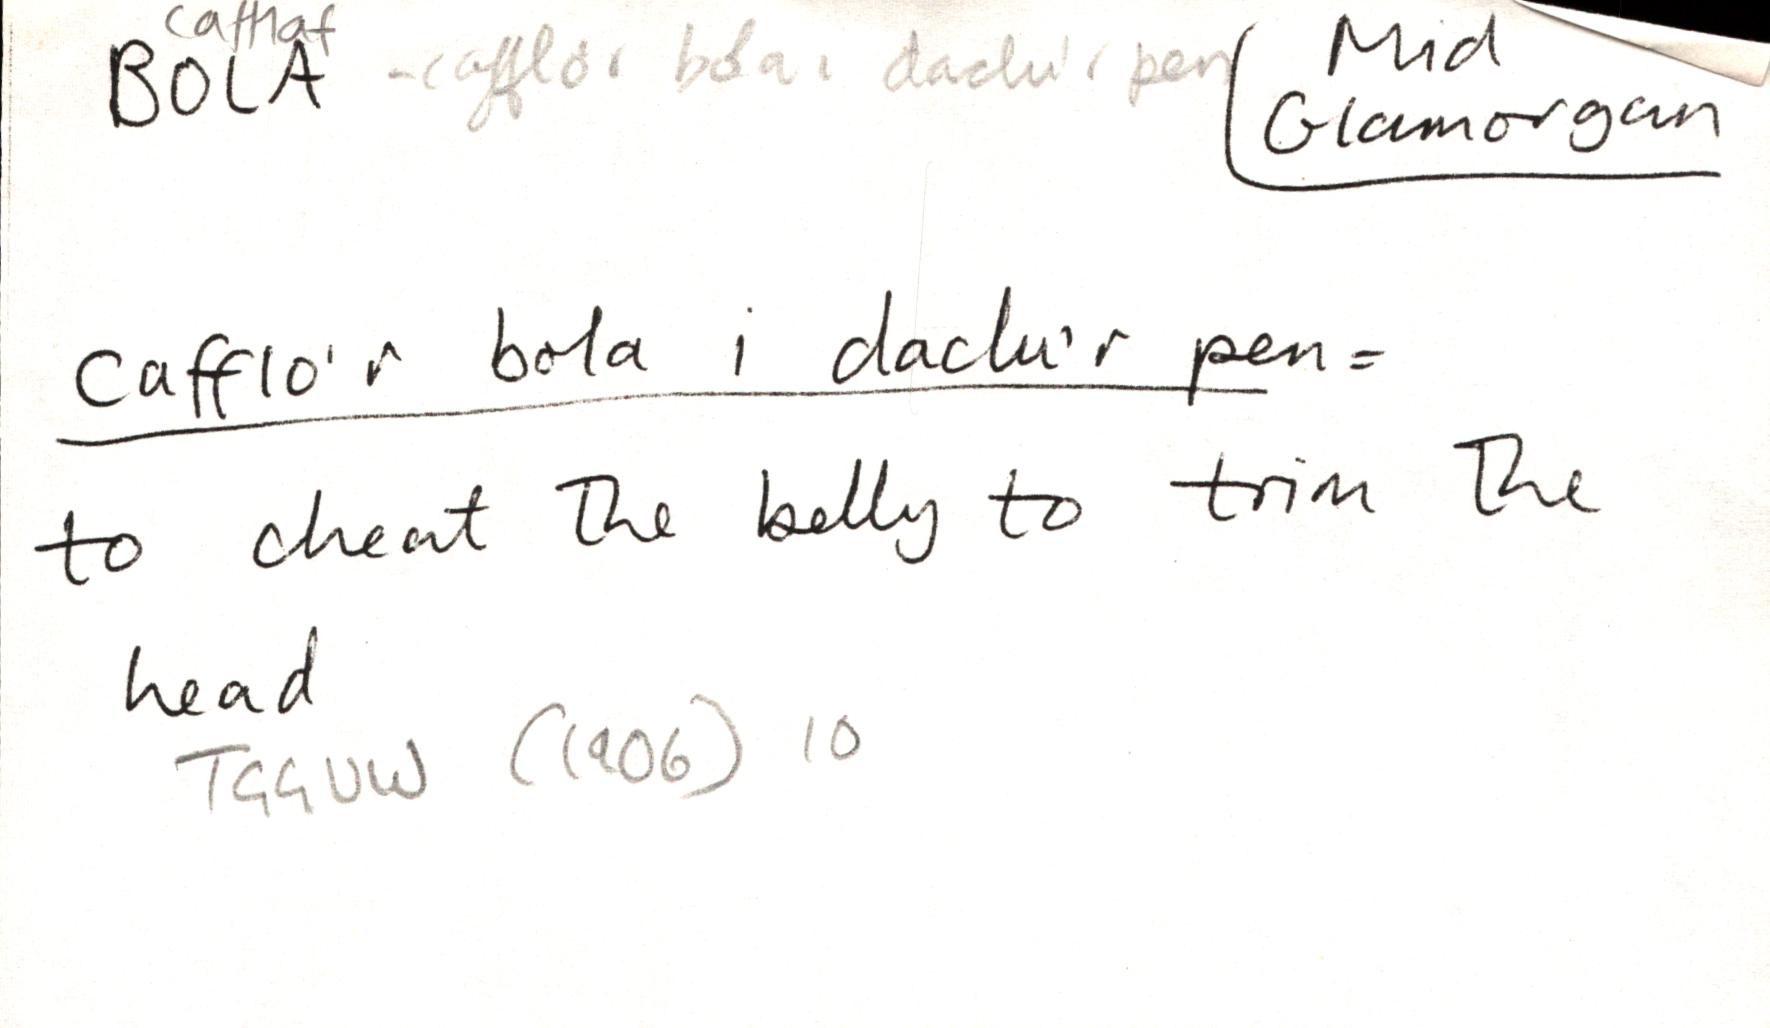 cafflaf
BOLA -cafflo'r bola i daclu'r pen
Mid
Glamorgan
Cafflo'r bola i daclu'r pen =
to cheat the belly to trim the
head
TGGUW (1906) 10